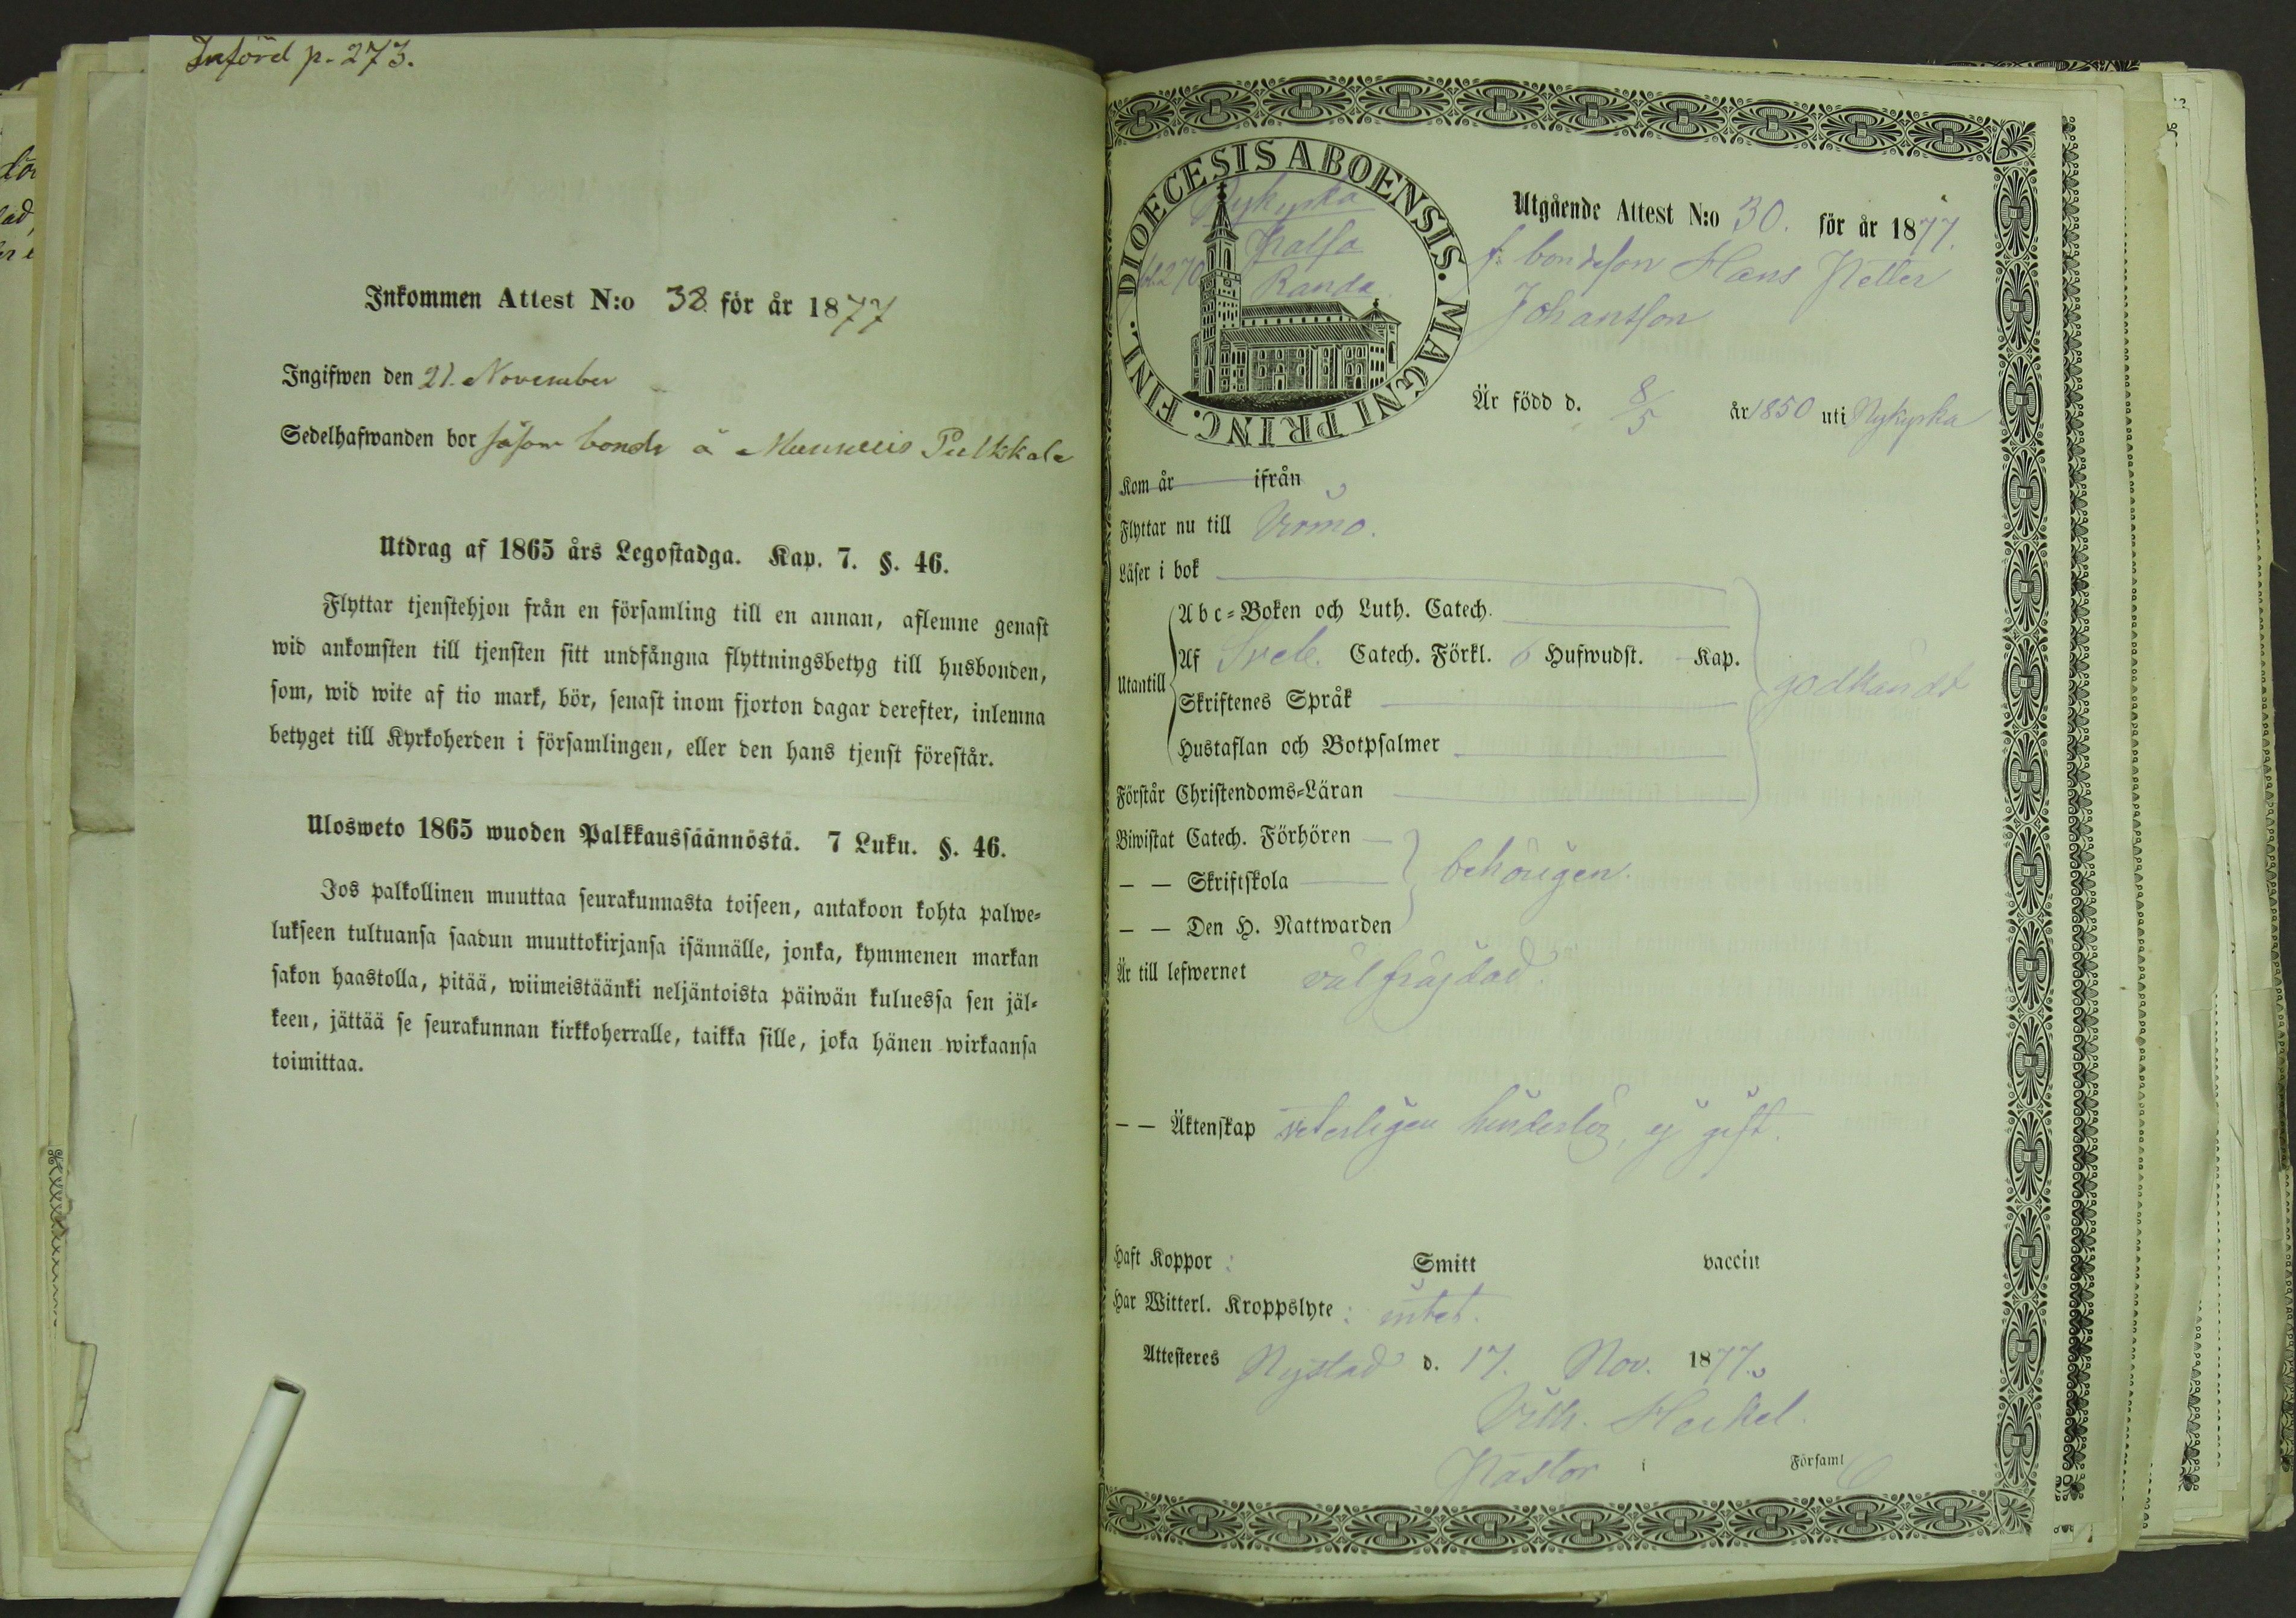 Införd p. 273.
Inkommen Attest N:o 38 för år 1877
Ingifwen den 21. November
Sedelhafwanden bor såsom bonde å Munnuis Pulkkala
Utdrag af 1865 års Legostadga. Kap. 7. §. 46.
Flyttar tjenstehjon från en församling till en annan, aflemne genast
wid ankomsten till tjensten sitt undfångna flyttningsbetyg till husbonden,
som, wid wite af tio mark, bör, senast inom fjorton dagar derefter, inlemna
betyget till Kyrkoherden i församlingen, eller den hans tjenst förestår.
Ulosweto 1865 wuoden Palkkaussäännöstä. 7 Luku. §. 46.
Jos palkollinen muuttaa seurakunnasta toiseen, antakoon kohta palwe-
lukseen tultuansa saadun muuttokirjansa isännälle, jonka, kymmenen markan
sakon haastolla, pitää, wiimeistäänki neljäntoista päiwän kuluessa sen jäl-
keen, jättää se seurakunnan kirkkoherralle, taikka sille, joka hänen wirkaansa
toimittaa.
DIOECESIS ABOENSIS. MAGNI PRINC. FINL.
Nykyrka
Palsa
270 Randa
Utgående Attest N:o 30. för år 1877.
f. bondeson Hans Petter
Johansson
Är född d. 8/5 år 1850 uti Nykyrka
Kom år ifrån
Flyttar nu till Virmo.
Läser i bok
Utantill
Abc-Boken och Luth. Catech.
Af Sveb. Catech. Förkl. 6 Hufwudst. Kap.
godkändt
Skriftenes Språk
Hustaflan och Botpsalmer
Förstår Christendoms-Läran
Biwistat Catech. Förhören
— — Skriftskola
behörigen.
— — Den H. Nattwarden
Är till lefwernet välfräjdad.
— — Äktenskap veterligen hinderlös, ej gift.
Haft Koppor : Smitt vaccin
Har Witterl. Kroppslyte : intet.
Attesteres Nystad d. 17. Nov. 1877.
Vilh. Heikel.
Pastor i Församl